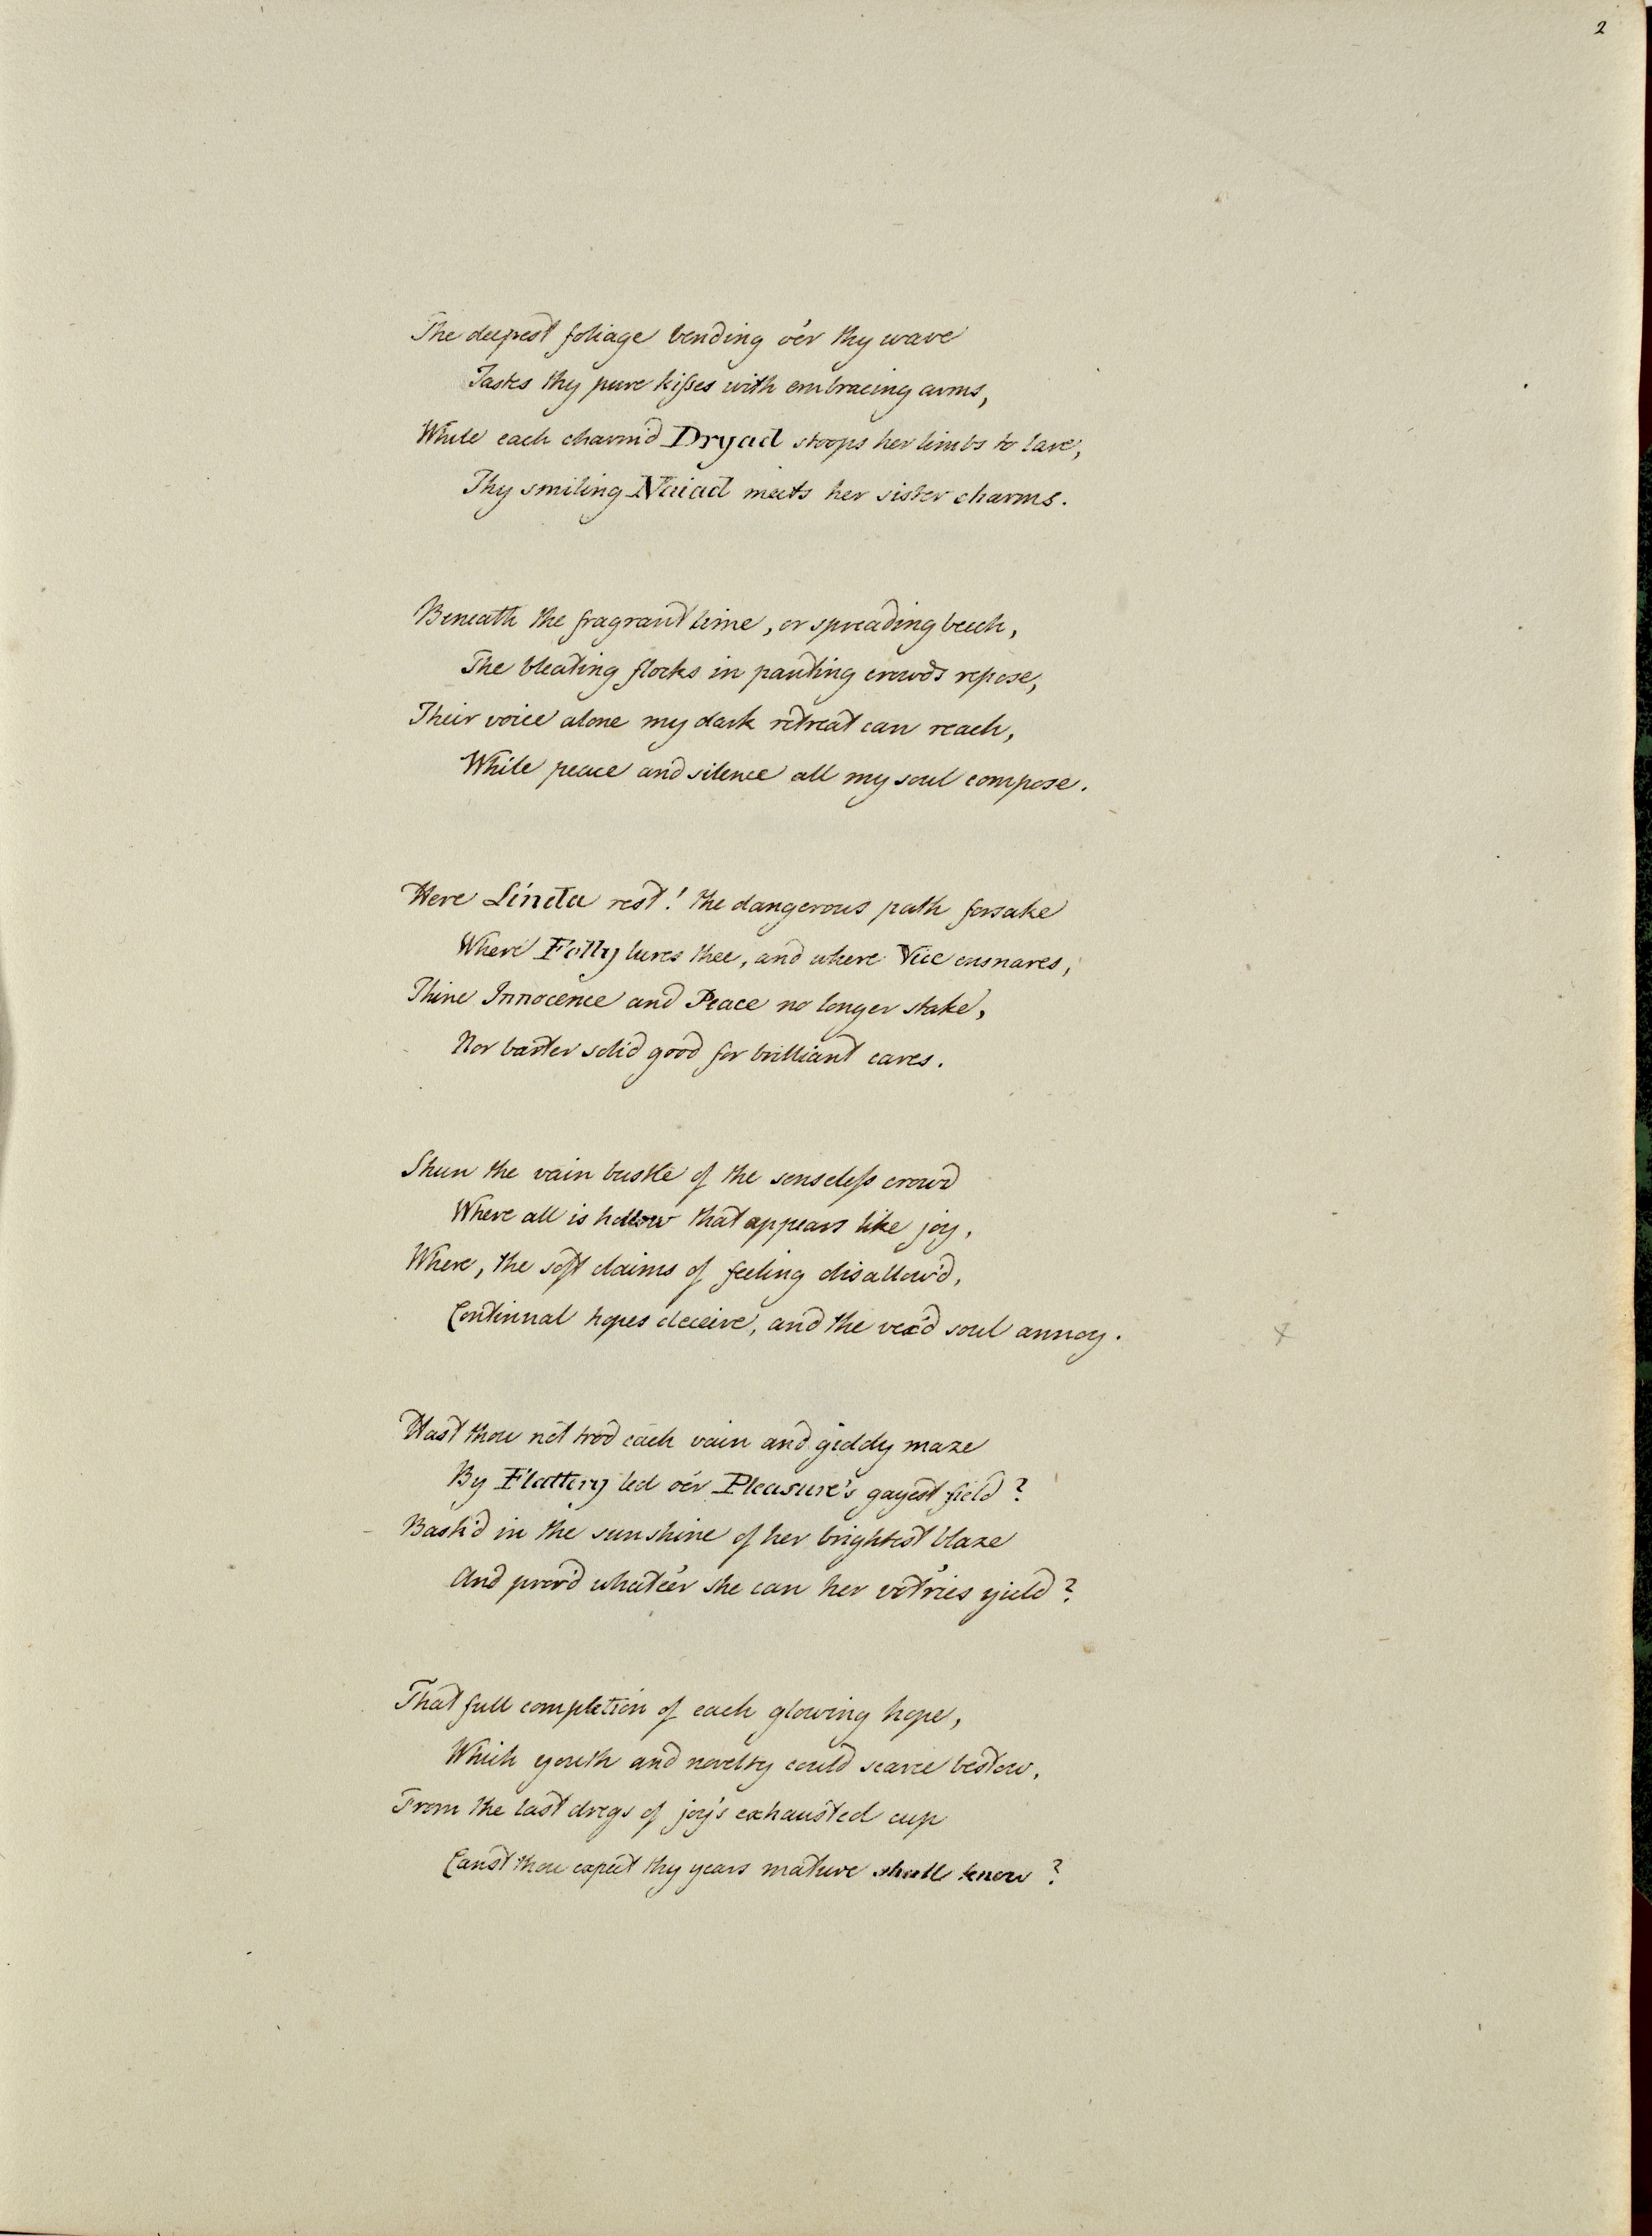 2
The deepest foliage bending o'er thy wave
Tastes thy pure kiſses with embracing arms,
While each charm'd Dryad stoops her limbs to lave,
Thy smiling Naiad meets her sister charms.
Beneath the fragrant lime, or spreading beech,
The bleating flocks in panting crowds repose,
Their voice alone my dark retreat can reach,
While peace and silence all my soul compose.
Here Linda rest! the dangerous path forsake
Where Folly lures thee, and where Vice ensnares,
Thine Innocence and Peace no longer stake,
Nor barter solid good for brilliant cares.
Shun the vain bustle of the senseleſs crowd
Where all is hollow that appears like joy,
Where, the soft claims of feeling disallow'd,
Continual hopes deceive, and the vex'd soul annoy.
Hast thou not trod each vain and giddy maze
By Flattery led o'er Pleasure's gayest field?
Bask'd in the sunshine of her brightest blaze
And prov'd whate'er she can her vot'ries yield?
That full completion of each glowing hope,
Which youth and novelty could scarce bestow,
From the last dregs of joy's exhausted cup
Canst thou expect thy years mature shall know?